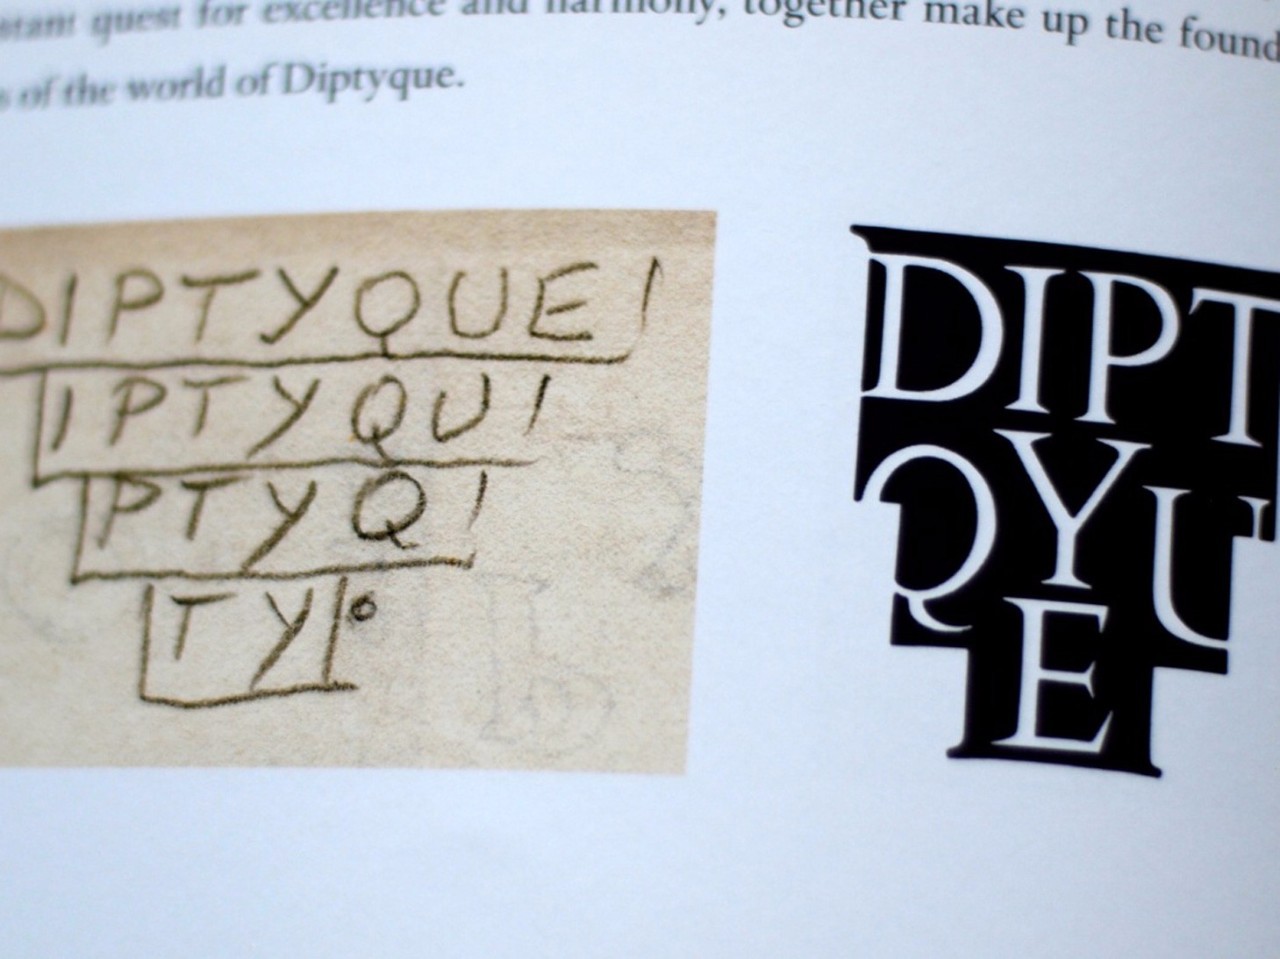 stant quest for excellence and harmony, together make up the found
s of the world of Diptyque.
DIPTYQUE!
IPTYQU!
PTYQ!
TY!
DIPT
QYU
E